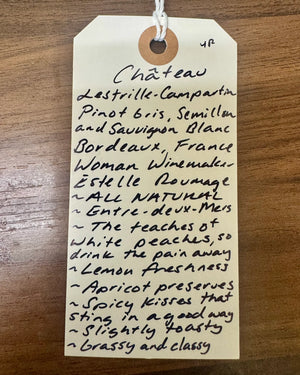 4B
Château
Lestrille-Campartin
Pinot Gris, Semillon
and Sauvignon Blanc
Bordeaux, France
Woman Winemaker-
Estelle Roumage
~ ALL NATURAL
~ Entre-deux-Mers
~ The teaches of
white peaches, so
drink the pain away
~ Lemon freshness
~ Apricot preserves
~ Spicy kisses that
sting in a good way
~ Slightly toasty
~ Grassy and classy